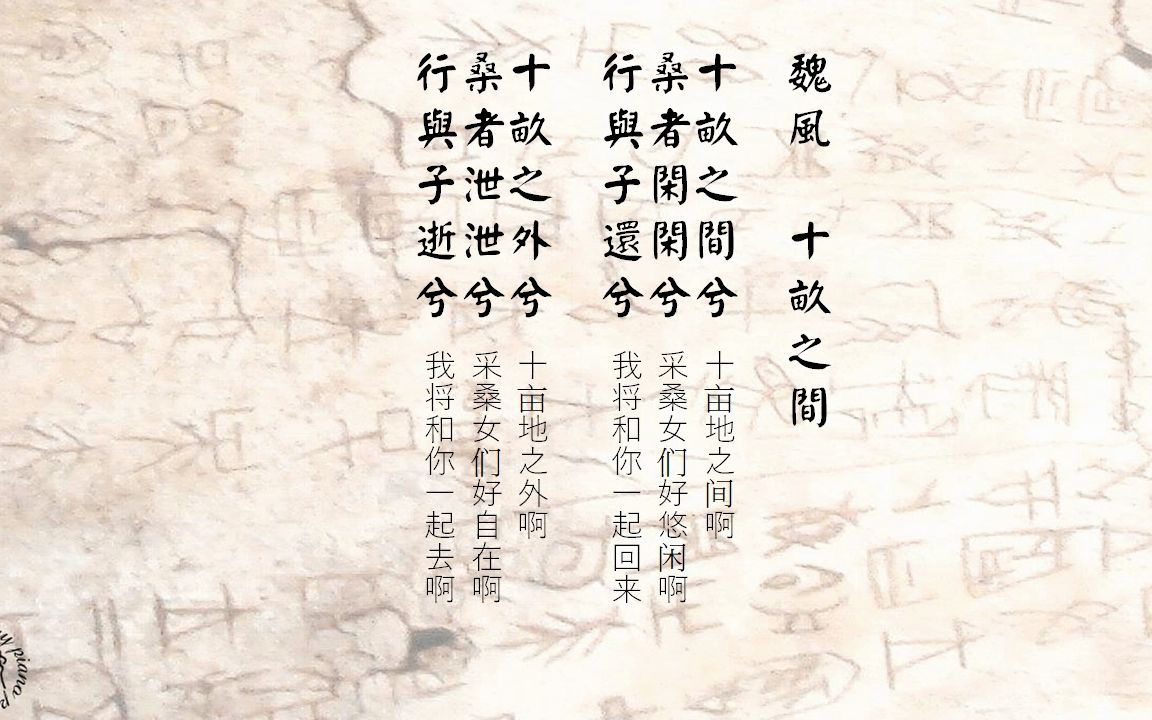 魏風 十畝之間
十畝之間兮
桑者閑閑兮
行與子還兮
十亩地之间啊
采桑女们好悠闲啊
我将和你一起回来
十畝之外兮
桑者泄泄兮
行與子逝兮
十亩地之外啊
采桑女们好自在啊
我将和你一起去啊
piano